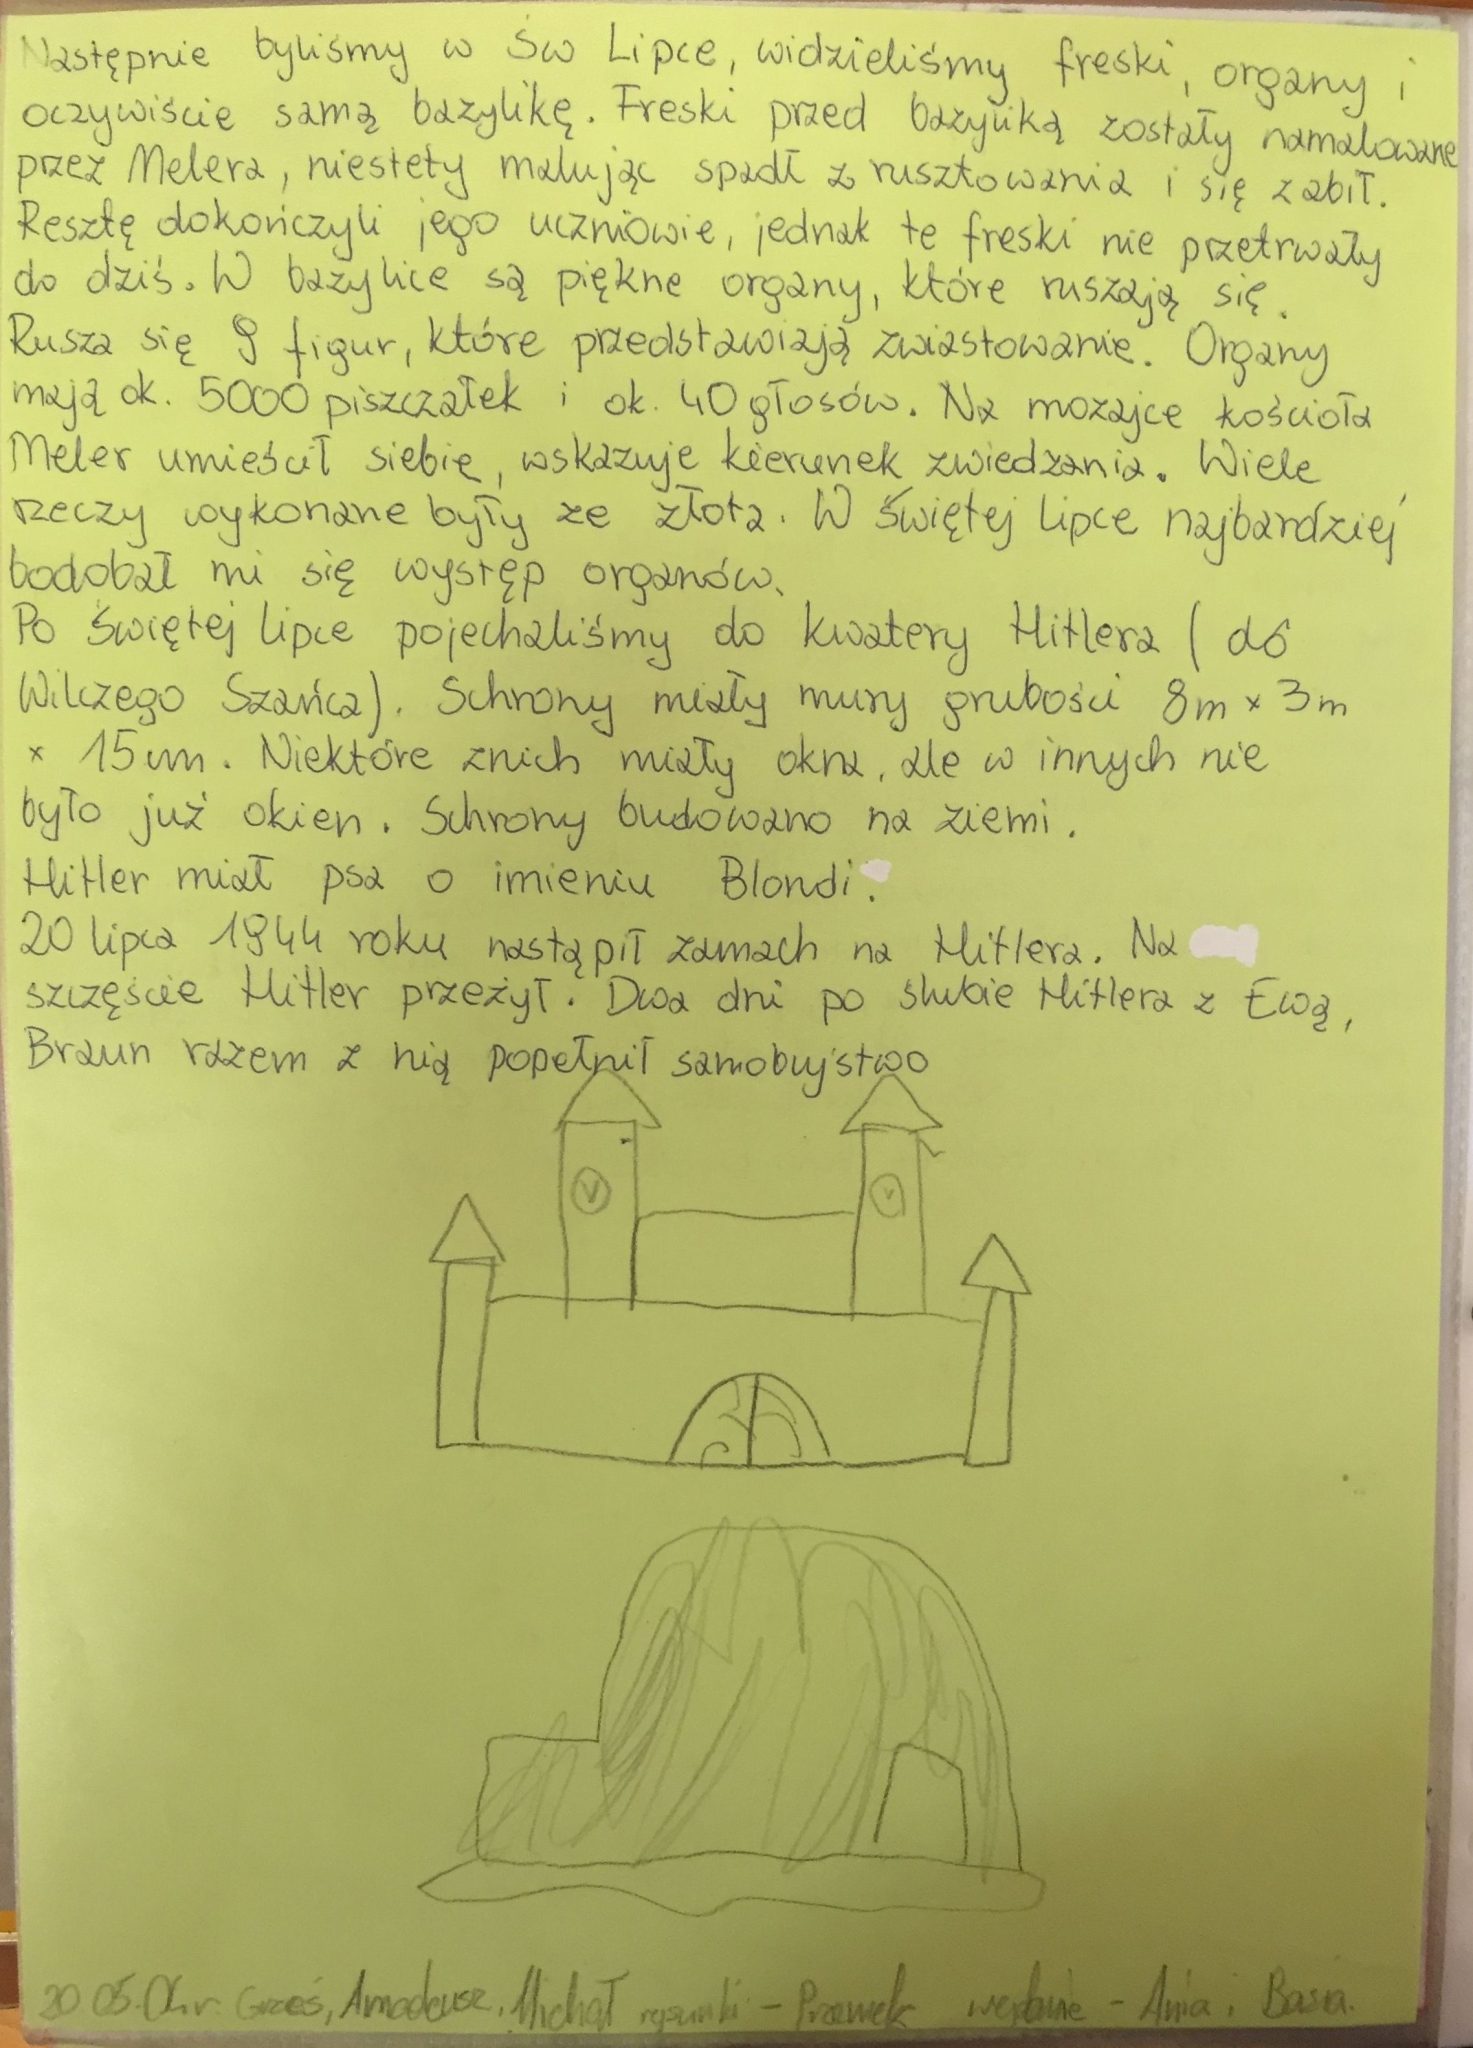 Następnie byliśmy w Św Lipce, widzieliśmy freski, organy i
oczywiście samą bazylikę. Freski przed bazyliką zostały namalowane
przez Melera, niestety malując spadł z rusztowania i się zabił.
Resztę dokończyli jego uczniowie, jednak te freski nie przetrwały
do dziś. W bazylice są piękne organy, które ruszają się.
Rusza się 9 figur, które przedstawiają zwiastowanie. Organy
mają ok. 5000 piszczałek i ok. 40 głosów. Na mozajce kościoła
Meler umieścił siebie, wskazuje kierunek zwiedzania. Wiele
rzeczy wykonane były ze złota. W Świętej Lipce najbardziej
bodobał mi się występ organów.
Po Świętej Lipce pojechaliśmy do kwatery Hitlera (do
Wilczego Szańca). Schrony miały mury grubości 8m x 3m
x 15cm. Niektóre znich miały okna, ale w innych nie
było już okien. Schrony budowano na ziemi.
Hitler miał psa o imieniu Blondi.
20 lipca 1944 roku nastąpił zamach na Hitlera. Na
szczęście Hitler przeżył. Dwa dni po ślubie Hitlera z Ewą,
Braun razem z nią popełnił samobujstwo
20.05.04r. Grześ, Amadeusz, Michał rysunki - Przemek - Ania i Basia.